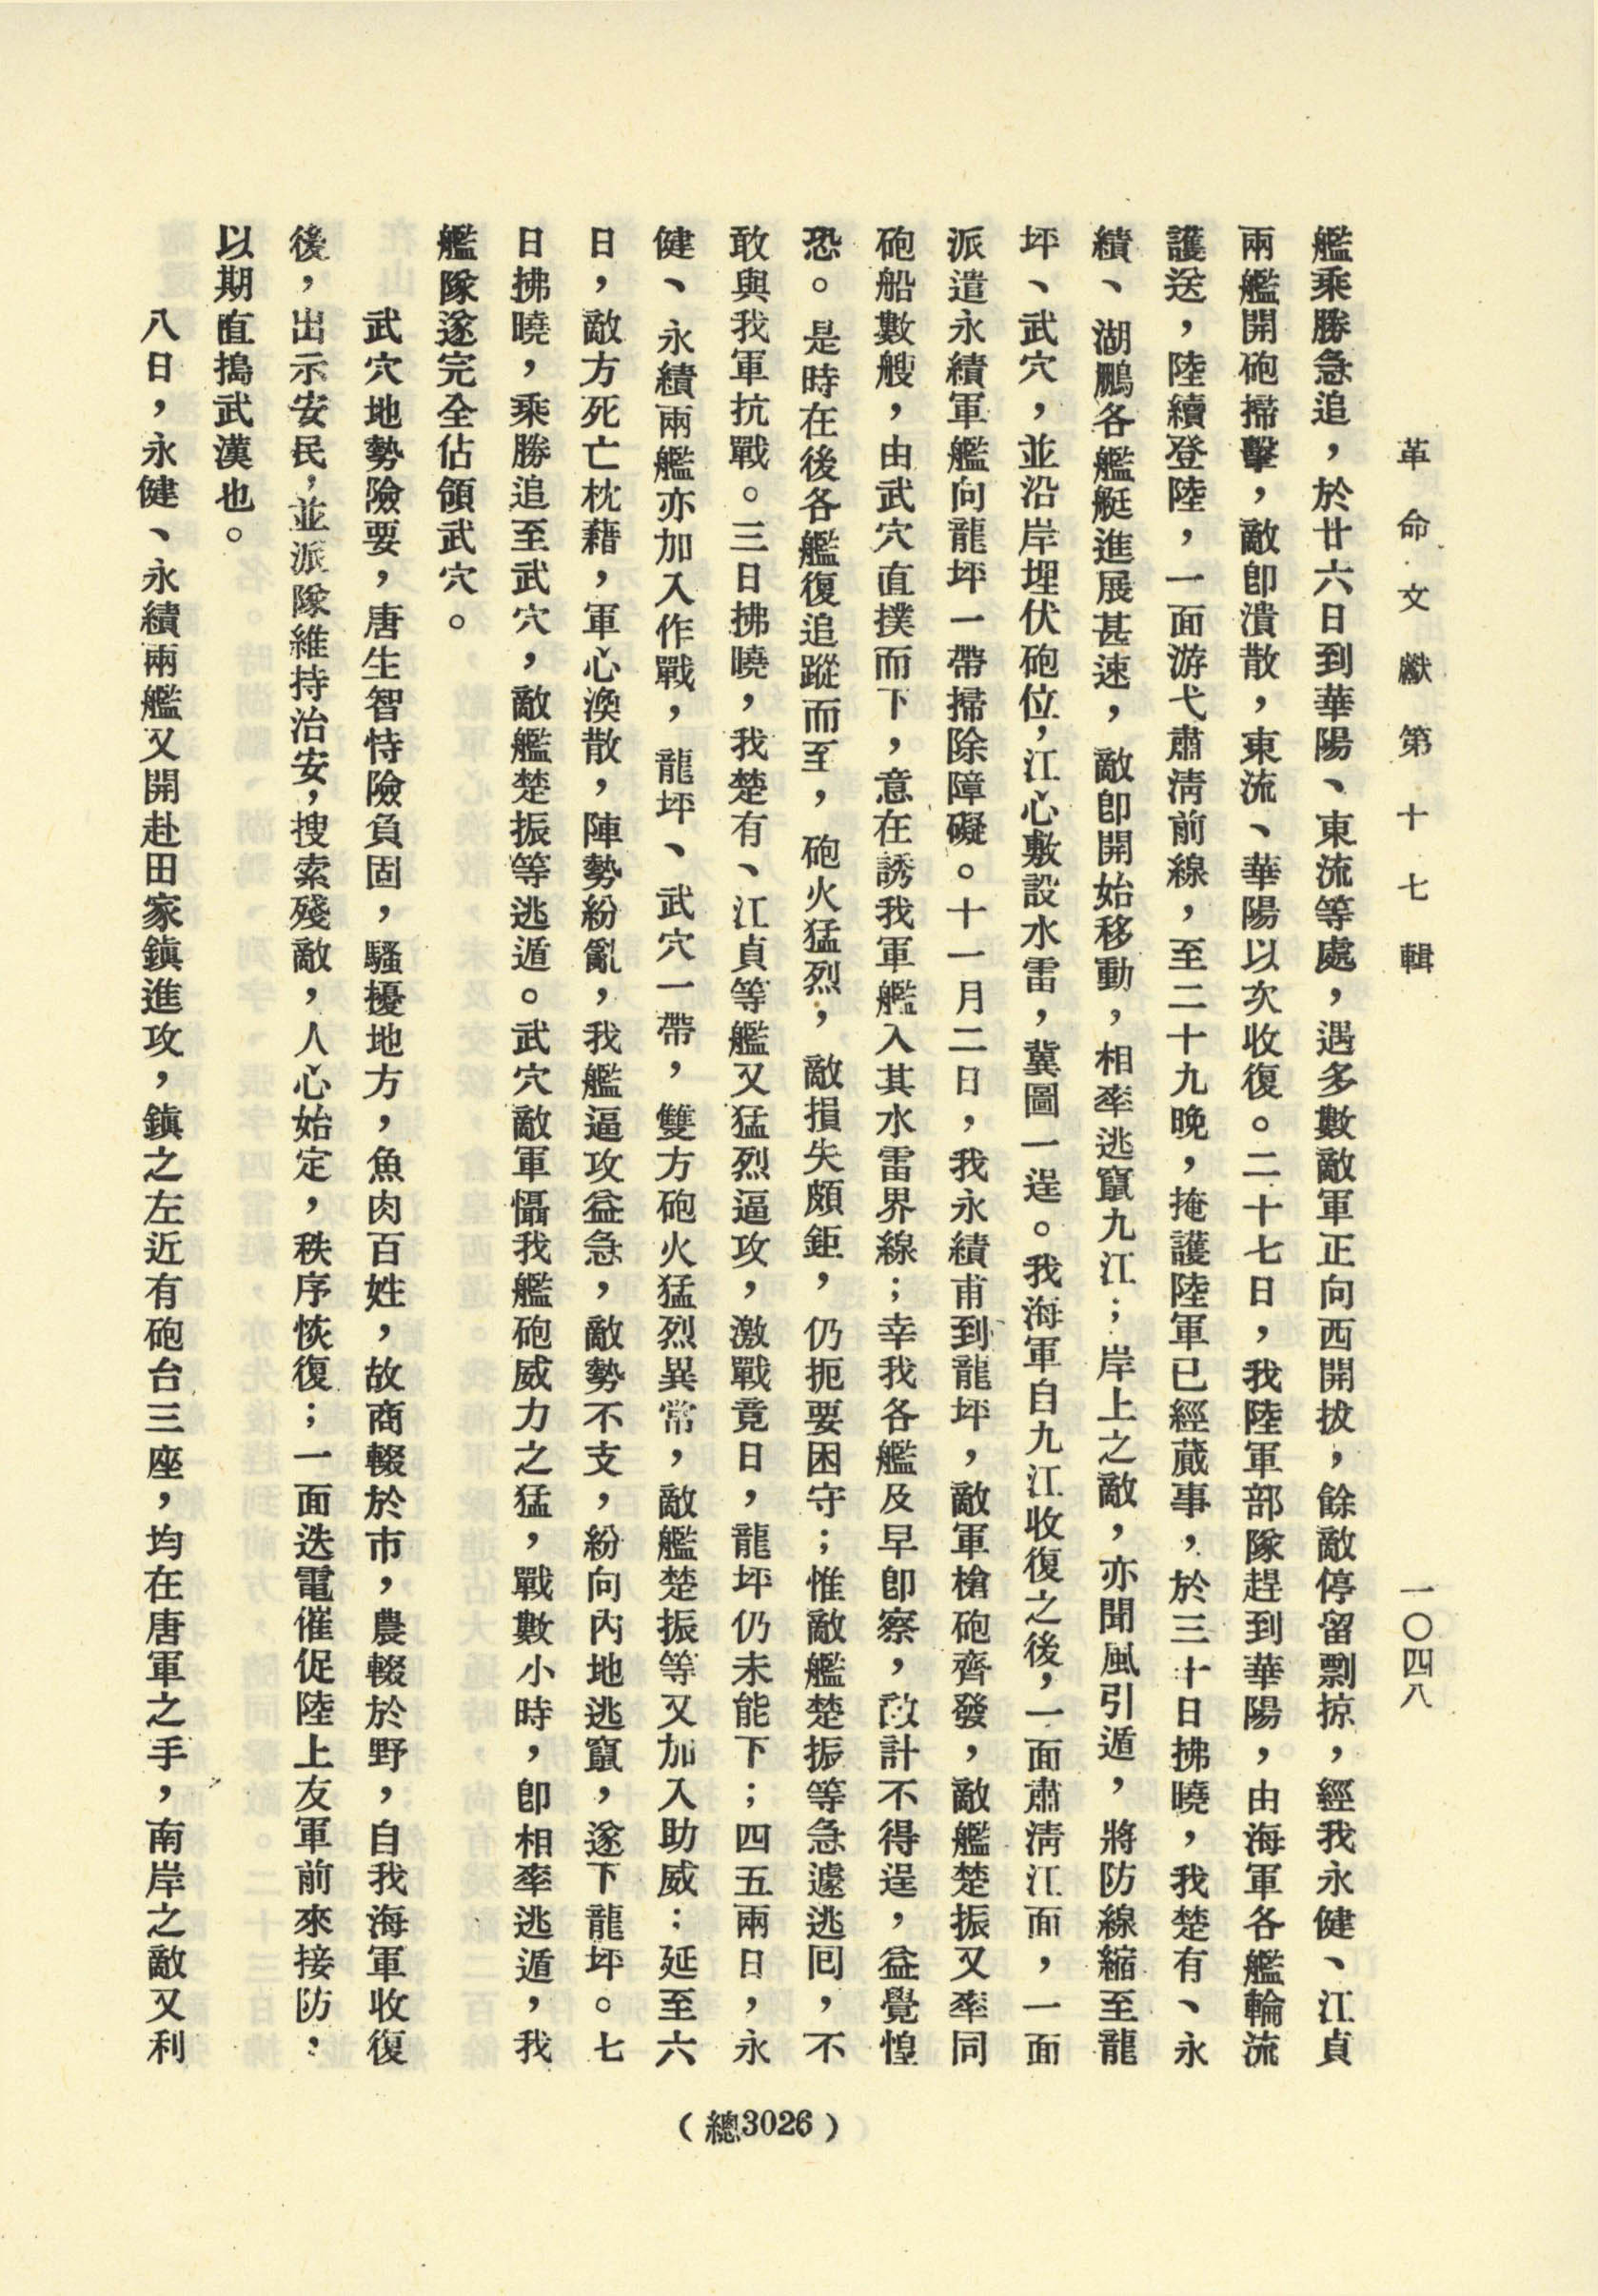 革命文獻第十七輯
一〇四八
艦乘勝急追，於廿六日到華陽、東流等處，遇多數敵軍正向西開拔，餘敵停留剽掠，經我永健、江貞
兩艦開砲掃擊，敵卽潰散，東流、華陽以次收復。二十七日，我陸軍部隊趕到華陽，由海軍各艦輪流
護送，陸續登陸，一面游弋肅淸前線，至二十九晚，掩護陸軍已經蕆事，於三十日拂曉，我楚有、永
績、湖鵬各艦艇進展甚速，敵卽開始移動，相率逃竄九江；岸上之敵，亦聞風引遁，將防線縮至龍
坪、武穴，並沿岸埋伏砲位，江心敷設水雷，冀圖一逞。我海軍自九江收復之後，一面肅淸江面，一面
派遣永績軍艦向龍坪一帶掃除障礙。十一月二日，我永績甫到龍坪，敵軍槍砲齊發，敵艦楚振又率同
砲船數艘，由武穴直撲而下，意在誘我軍艦入其水雷界線；幸我各艦及早卽察，敵計不得逞，益覺惶
恐。是時在後各艦復追蹤而至，砲火猛烈，敵損失頗鉅，仍扼要困守；惟敵艦楚振等急遽逃回，不
敢與我軍抗戰。三日拂曉，我楚有、江貞等艦又猛烈逼攻，激戰竟日，龍坪仍未能下；四五兩日，永
健、永績兩艦亦加入作戰，龍坪、武穴一帶，雙方砲火猛烈異常，敵艦楚振等又加入助威；延至六
日，敵方死亡枕藉，軍心渙散，陣勢紛亂，我艦逼攻益急，敵勢不支，紛向內地逃竄，遂下龍坪。七
日拂曉，乘勝追至武穴，敵艦楚振等逃遁。武穴敵軍懾我艦砲威力之猛，戰數小時，卽相率逃遁，我
艦隊遂完全佔領武穴。
武穴地勢險要，唐生智恃險負固，騷擾地方，魚肉百姓，故商輟於市，農輟於野，自我海軍收復
後，出示安民，並派隊維持治安，搜索殘敵，人心始定，秩序恢復；一面迭電催促陸上友軍前來接防，
以期直搗武漢也。
八日，永健、永績兩艦又開赴田家鎭進攻，鎭之左近有砲台三座，均在唐軍之手，南岸之敵又利
（總3026）